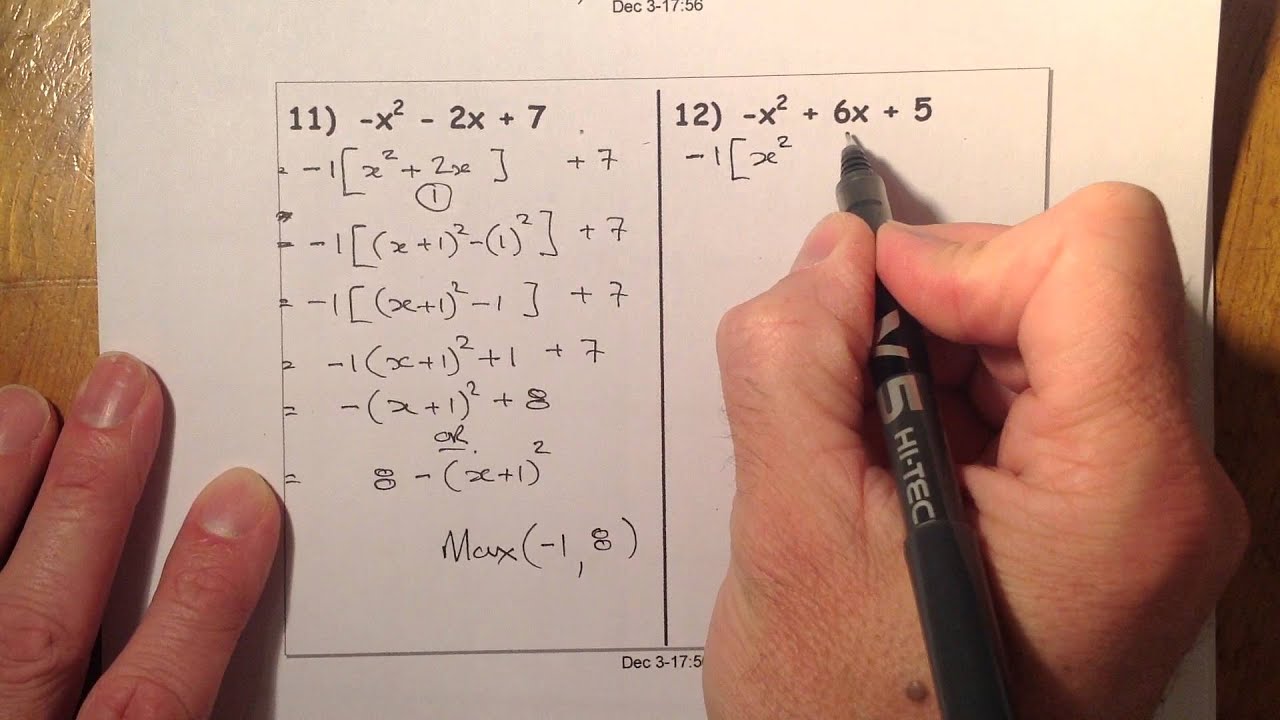 Dec 3-17:56
11) -x² - 2x + 7
= -1[x² + 2x ] + 7
①
= -1[(x+1)² -(1)²] + 7
= -1[(x+1)² - 1 ] + 7
= -1(x+1)² + 1 + 7
= -(x+1)² + 8
OR
= 8 - (x+1)²
Max(-1, 8)
12) -x² + 6x + 5
-1[x²
V5 HI-TEC
Dec 3-17:5